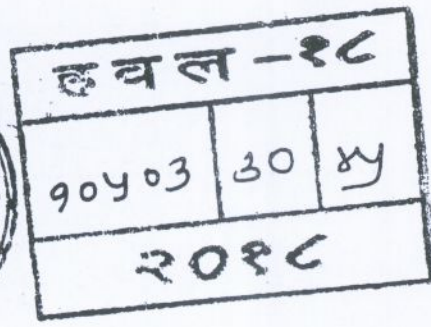 हवल - १८
१०५०३ ३० ४५
२०१८